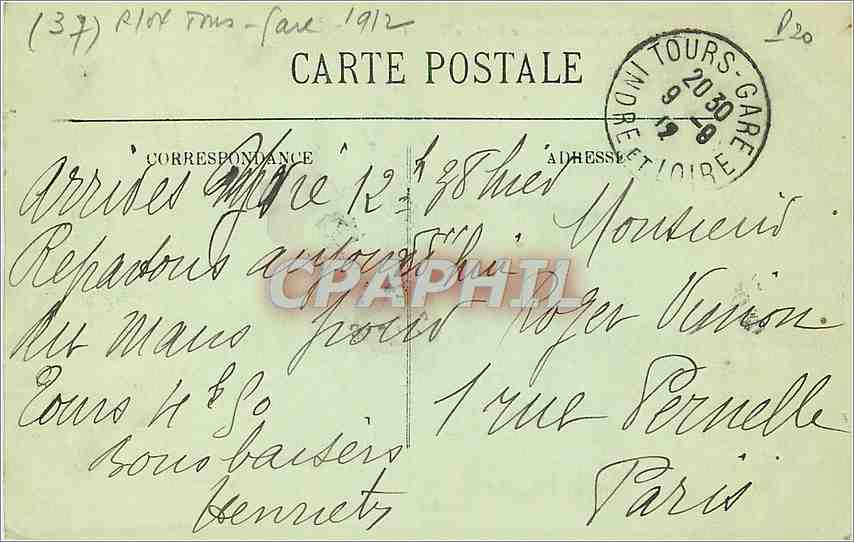 (37) Tours-Gare 1912
P20
CARTE POSTALE
TOURS-GARE
20 30
9 -9
12
INDRE ET LOIRE
CORRESPONDANCE
ADRESSE
Arrivés 12 h 38 hier
Repartons aujourd'hui
du Mans pour
Tours 4h50
Bons baisers
Henriette
Monsieur
Roger
1 rue Pernelle
Paris
CPAPHIL